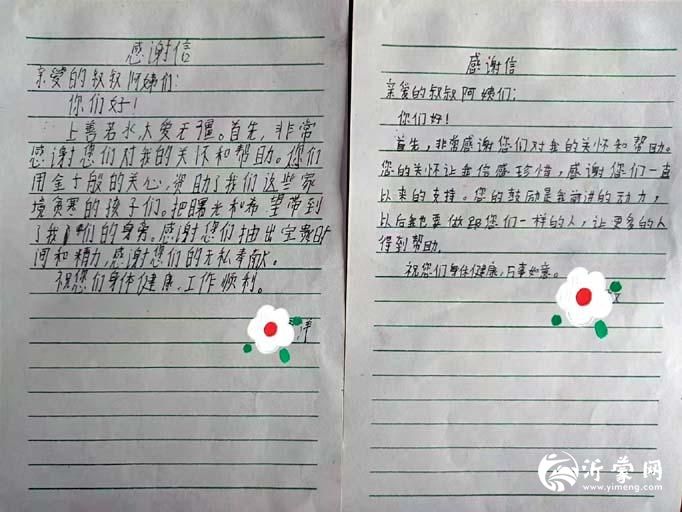 感谢信
亲爱的叔叔阿姨们：
你们好！
上善若水大爱无疆。首先，非常
感谢您们对我的关怀和帮助。你们
用金子般的关心，资助了我们这些家
境贫寒的孩子们。把曙光和希望带到
了我们的身旁。感谢您们抽出宝贵时
间和精力，感谢您们的无私奉献。
祝您们身体健康、工作顺利。
感谢信
亲爱的叔叔阿姨们：
你们好！
首先，非常感谢您们对我的关怀和帮助。
您的关怀让我倍感珍惜，感谢您们一直
以来的支持。您的鼓励是我前进的动力，
以后我也要做跟您们一样的人，让更多的人
得到帮助。
祝您们身体健康，万事如意。
沂蒙网
www.yimeng.com